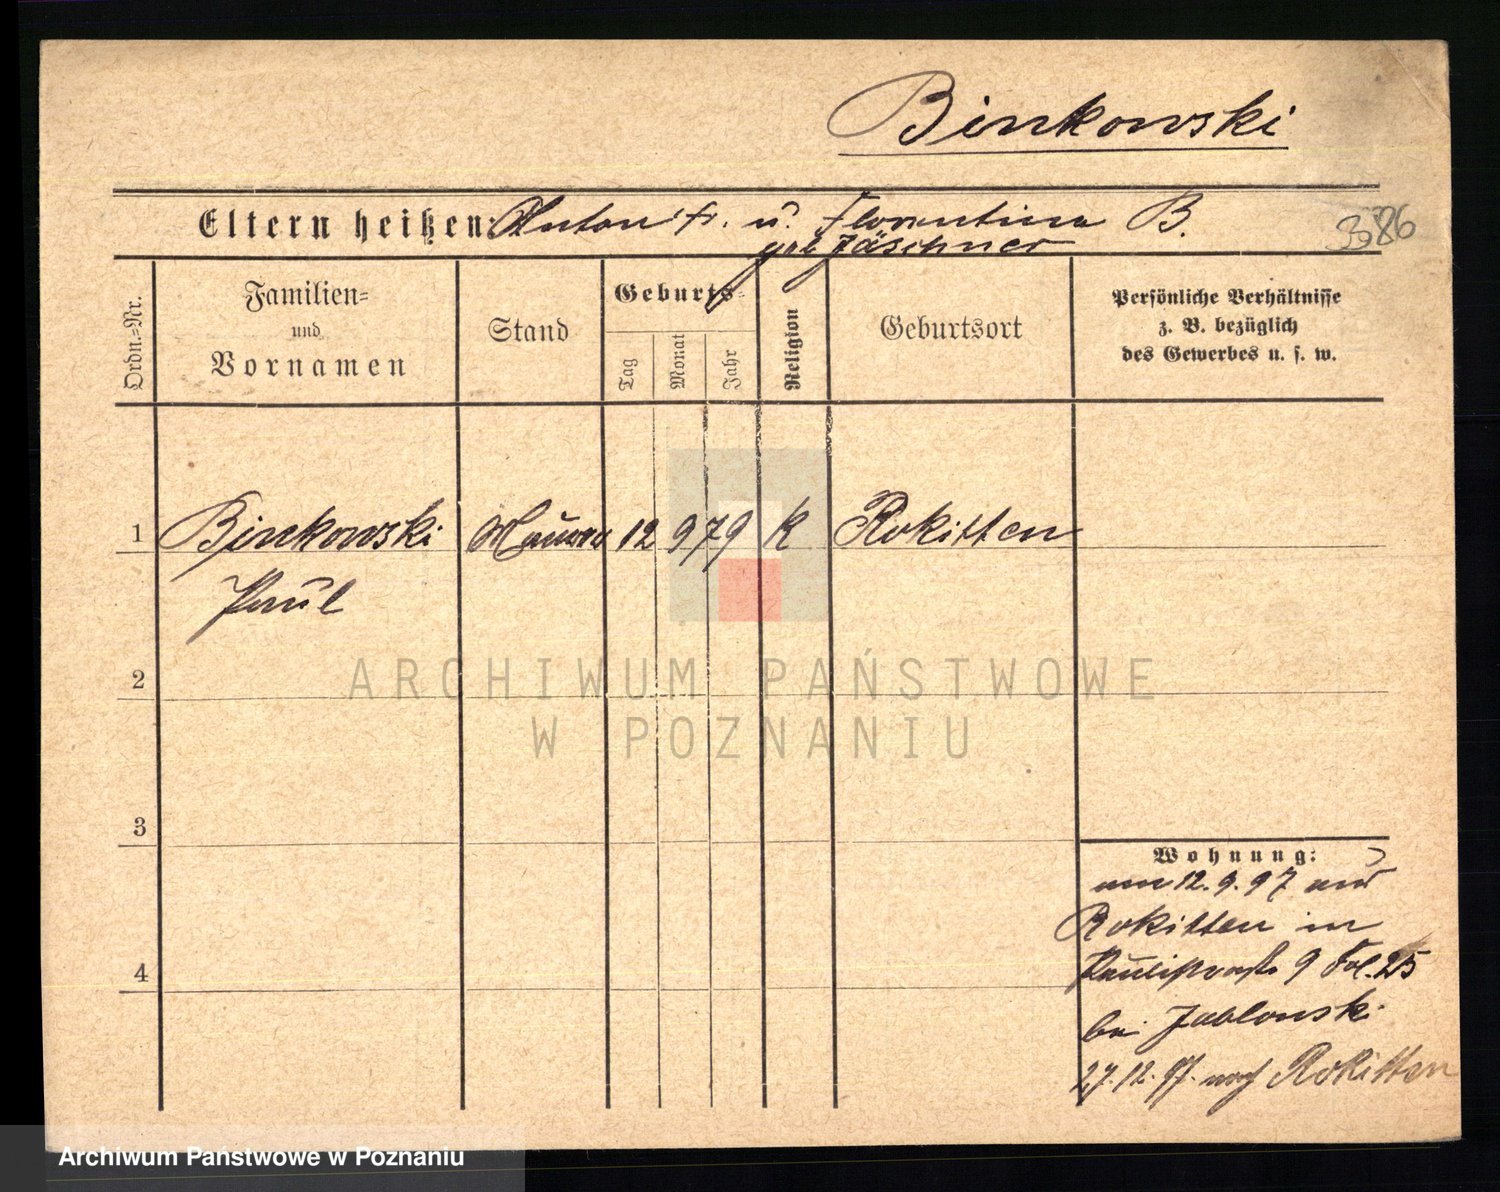 Binkowski
Eltern heißen: Anton u. Florentina B. 3986
geb Jäschner
Ordn.=Nr.
Familien=
und
Vornamen
Stand
Geburts=
Tag
Monat
Jahr
Religion
Geburtsort
Persönliche Verhältnisse
z. B. bezüglich
des Gewerbes u. s. w.
1 Binkowski Maurer 12 9 79 K Rokitten
Paul
2
3
4
Wohnung:
am 12.9.97 aus
Rokitten in
Paulistraße 9 Fol. 25
bei Jablonski
27.12.97. nach Rokitten
ARCHIWUM PAŃSTWOWE
W POZNANIU
Archiwum Państwowe w Poznaniu